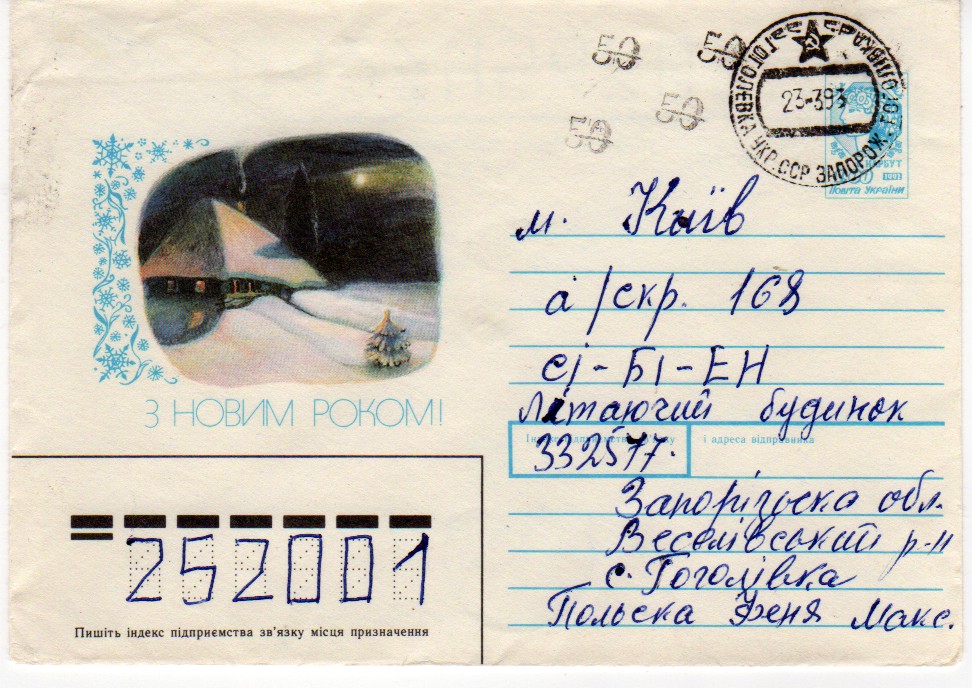 50
50
50
50
ГОГОЛЕВКА УКР.ССР ЗАПОРОЖ. ГОГОЛІВКА
23-393
1991
ПОШТА УКРАЇНИ
м. Київ
а/скр. 168
СІ-БІ-ЕН
Літаючий будинок
Індекс підприємства зв'язку і адреса відправника
332577.
Запорізьска обл.
Веселівський р-н
с. Гоголівка
Польска Феня Макс.
З НОВИМ РОКОМ!
252001
Пишіть індекс підприємства зв'язку місця призначення